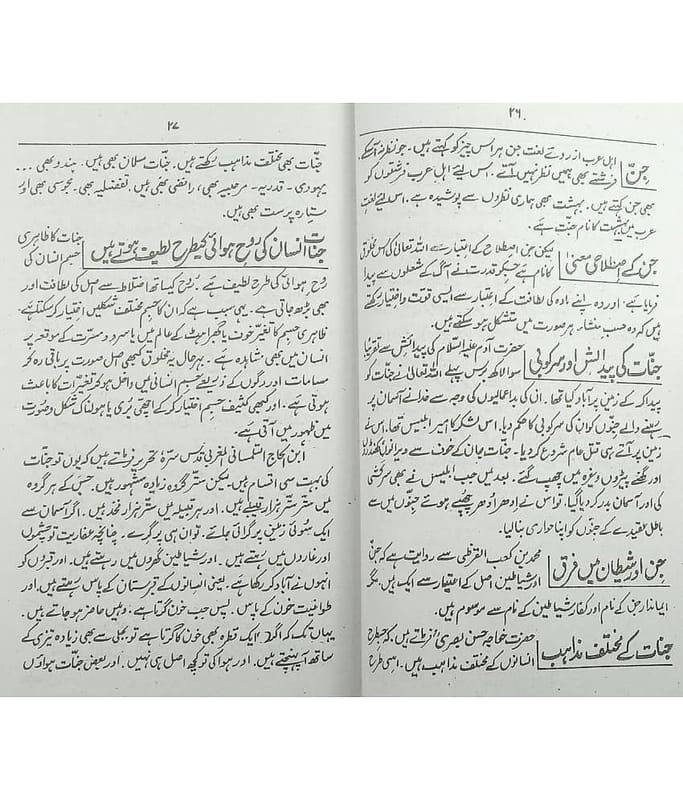 ۲۶
جنّ
اہل عرب از روئے لغت جن ہر اس چیز کو کہتے ہیں۔ جو نظر نہ آسکے
فرشتے بھی ہمیں نظر نہیں آتے۔ اس لیے اہل عرب فرشتوں کو
بھی جن کہتے ہیں۔ بہشت بھی ہماری نظروں سے پوشیدہ ہے۔ اس لیے لغتِ
عرب میں بہشت کا نام جنّت ہے۔
جن کے اصطلاحی معنیٰ
لیکن جن اصطلاح کے اعتبار سے اللہ تعالیٰ کی اس مخلوق
کا نام ہے جس کو قدرت نے آگ کے شعلوں سے پیدا
فرمایا ہے۔ اور وہ اپنے مادہ کی لطافت کے اعتبار سے ایسی قوت و اختیار رکھتے
ہیں کہ وہ حسب منشار ہر صورت میں متشکل ہو سکتے ہیں۔
جنّات کی پیدائش اور سرکوبی
حضرت آدم علیہ السلام کی پیدائش سے تقریباً
سوا لاکھ برس پہلے اللہ تعالیٰ نے جنّات کو
پیدا کر کے زمین پر آباد کیا تھا۔ ان کی بد اعمالیوں کی وجہ سے خدا نے آسمان پر
رہنے والے جنّوں کو ان کی سرکوبی کا حکم دیا۔ اس لشکر کا امیر ابلیس تھا۔ اس نے
زمین پر آتے ہی قتل عام شروع کر دیا۔ جنّات جان کے خوف سے ویرانوں کھنڈروں
اور گھنے پیڑوں وغیرہ میں چھپ گئے۔ بعد میں جب ابلیس نے بھی سرکشی
کی اور آسمان بدر کر دیا گیا۔ تو اس نے ادھر اُدھر چھپے ہوئے جنّوں میں سے
باطل عقیدے کے جنّوں کو اپنا حواری بنا لیا۔
جن اور شیطان میں فرق
محمد بن کعب القرظی سے روایت ہے کہ جنّ
اور شیاطین اصل کے اعتبار سے ایک ہیں۔ مگر
ایماندار جن کے نام اور کفار شیاطین کے نام سے موسوم ہیں۔
جنات کے مختلف مذاہب
حضرت خواجہ حسن بصریؒ فرماتے ہیں۔ کہ جس طرح
انسانوں کے مختلف مذاہب ہیں۔ اسی طرح
۲۷
جنّات بھی مختلف مذاہب رکھتے ہیں۔ جنّات مسلمان بھی ہیں۔ ہندو بھی ...
یہودی۔ قدریہ۔ مرجیہ بھی، رافضی بھی ہیں۔ تفضلیہ بھی۔ مجوسی بھی اور
ستارہ پرست بھی ہیں۔
جنّات انسان کی روح ہوائی کیطرح لطیف ہوتے ہیں
جنات کا ظاہری
جسم انسان کی
رُح ہوائی کی طرح لطیف ہے۔ رُوح کیساتھ اختلاط سے اصل کی لطافت اور
بھی بڑھ جاتی ہے۔ یہی سبب ہے کہ ان کا جسم مختلف شکلیں اختیار کر سکتا ہے۔
ظاہری جسم کا تغیّر خوف یا گھبراہٹ کے عالم میں یا سرور و مسرّت کے موقعہ پر
انسان میں بھی مشاہدہ ہے۔ بہرحال یہ مخلوق کبھی اصل صورت پر باقی رہ کر
مسامات اور رگوں کے ذریعے جسم انسانی میں داخل ہو کر تغیّرات کا باعث
ہوتی ہے۔ اور کبھی کثیف جسم اختیار کر کے اچھی بُری یا ہولناک شکل و صورت
میں ظہور میں آتی ہے۔
ابن الحاج التلمسانی المغربی قدس سرّہٗ تحریر فرماتے ہیں کہ یوں تو جنات
کی بہت سی اقسام ہیں لیکن ستّر گروہ زیادہ مشہور ہیں۔ جس کے ہر گروہ
میں ستّر ستّر ہزار قبیلے ہیں۔ اور ہر قبیلہ میں ستّر ہزار فخذ ہیں۔ اگر آسمان سے
ایک سُوئی زمین پر گرائی جائے۔ تو ان ہی پر گرے۔ چنانچہ عفاریت تو چشموں
اور غاروں میں رہتے ہیں۔ اور شیاطین گھروں میں رہتے ہیں۔ اور قبروں کو
انہوں نے آباد کر رکھا ہے۔ یعنی انسانوں کے قبرستان کے پاس رہتے ہیں۔ اور
طواغیت خون کے پاس۔ پس جب خون گرتا ہے۔ وہیں حاضر ہو جاتے ہیں۔
یہاں تک کہ اگر ایک قطرہ بھی خون کا گرتا ہے تو بجلی سے بھی زیادہ تیزی کے
ساتھ آ پہنچتے ہیں۔ اور ہوا کی تو کچھ اصل ہی نہیں۔ اور بعض جنّات ہواؤں